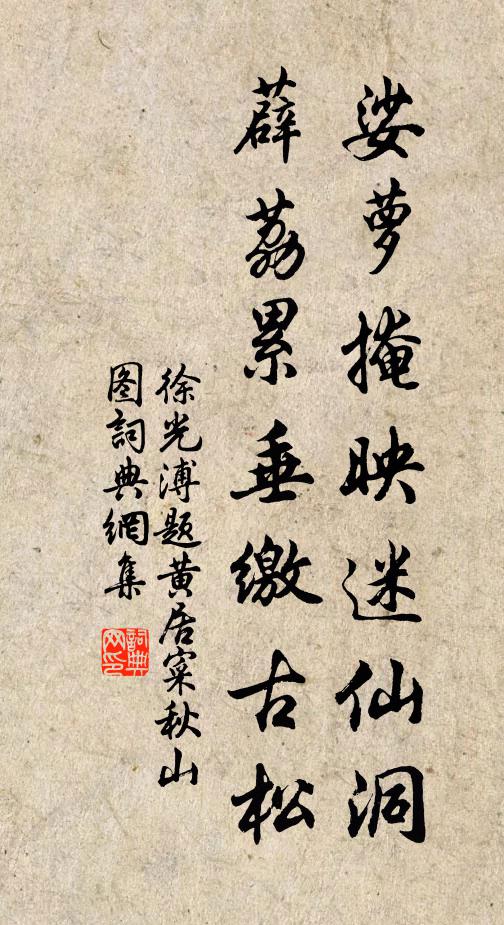 娑萝掩映迷仙洞
薜荔累垂缴古松
徐光溥题黄居寀秋山
图詞典網集
詞典
网印